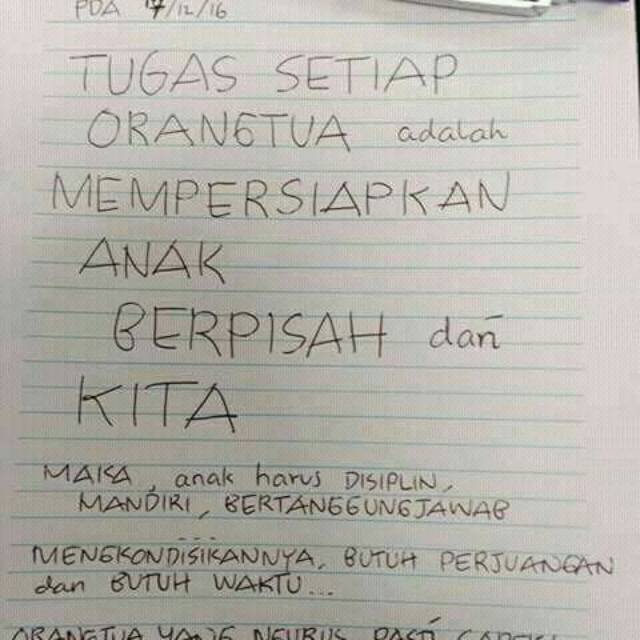 PDA 17/12/16
TUGAS SETIAP
ORANGTUA adalah
MEMPERSIAPKAN
ANAK
BERPISAH dari
KITA
MAKA, anak harus DISIPLIN,
MANDIRI, BERTANGGUNGJAWAB
...
MENGKONDISIKANNYA, BUTUH PERJUANGAN
dan BUTUH WAKTU...
ORANGTUA YANG NGURUS PASTI